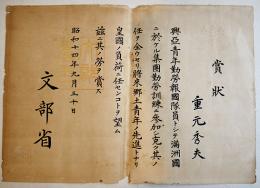 賞狀
重元秀夫
興亞青年勤勞報國隊員トシテ滿洲國
ニ於ケル集團勤勞訓練ニ參加シ克ク其ノ
任ヲ全ウセリ將來鄕土靑年ノ先進トナリ
皇國ノ負荷ニ任センコトヲ望ム
茲ニ其ノ勞ヲ賞ス
昭和十四年九月三十日
文部省